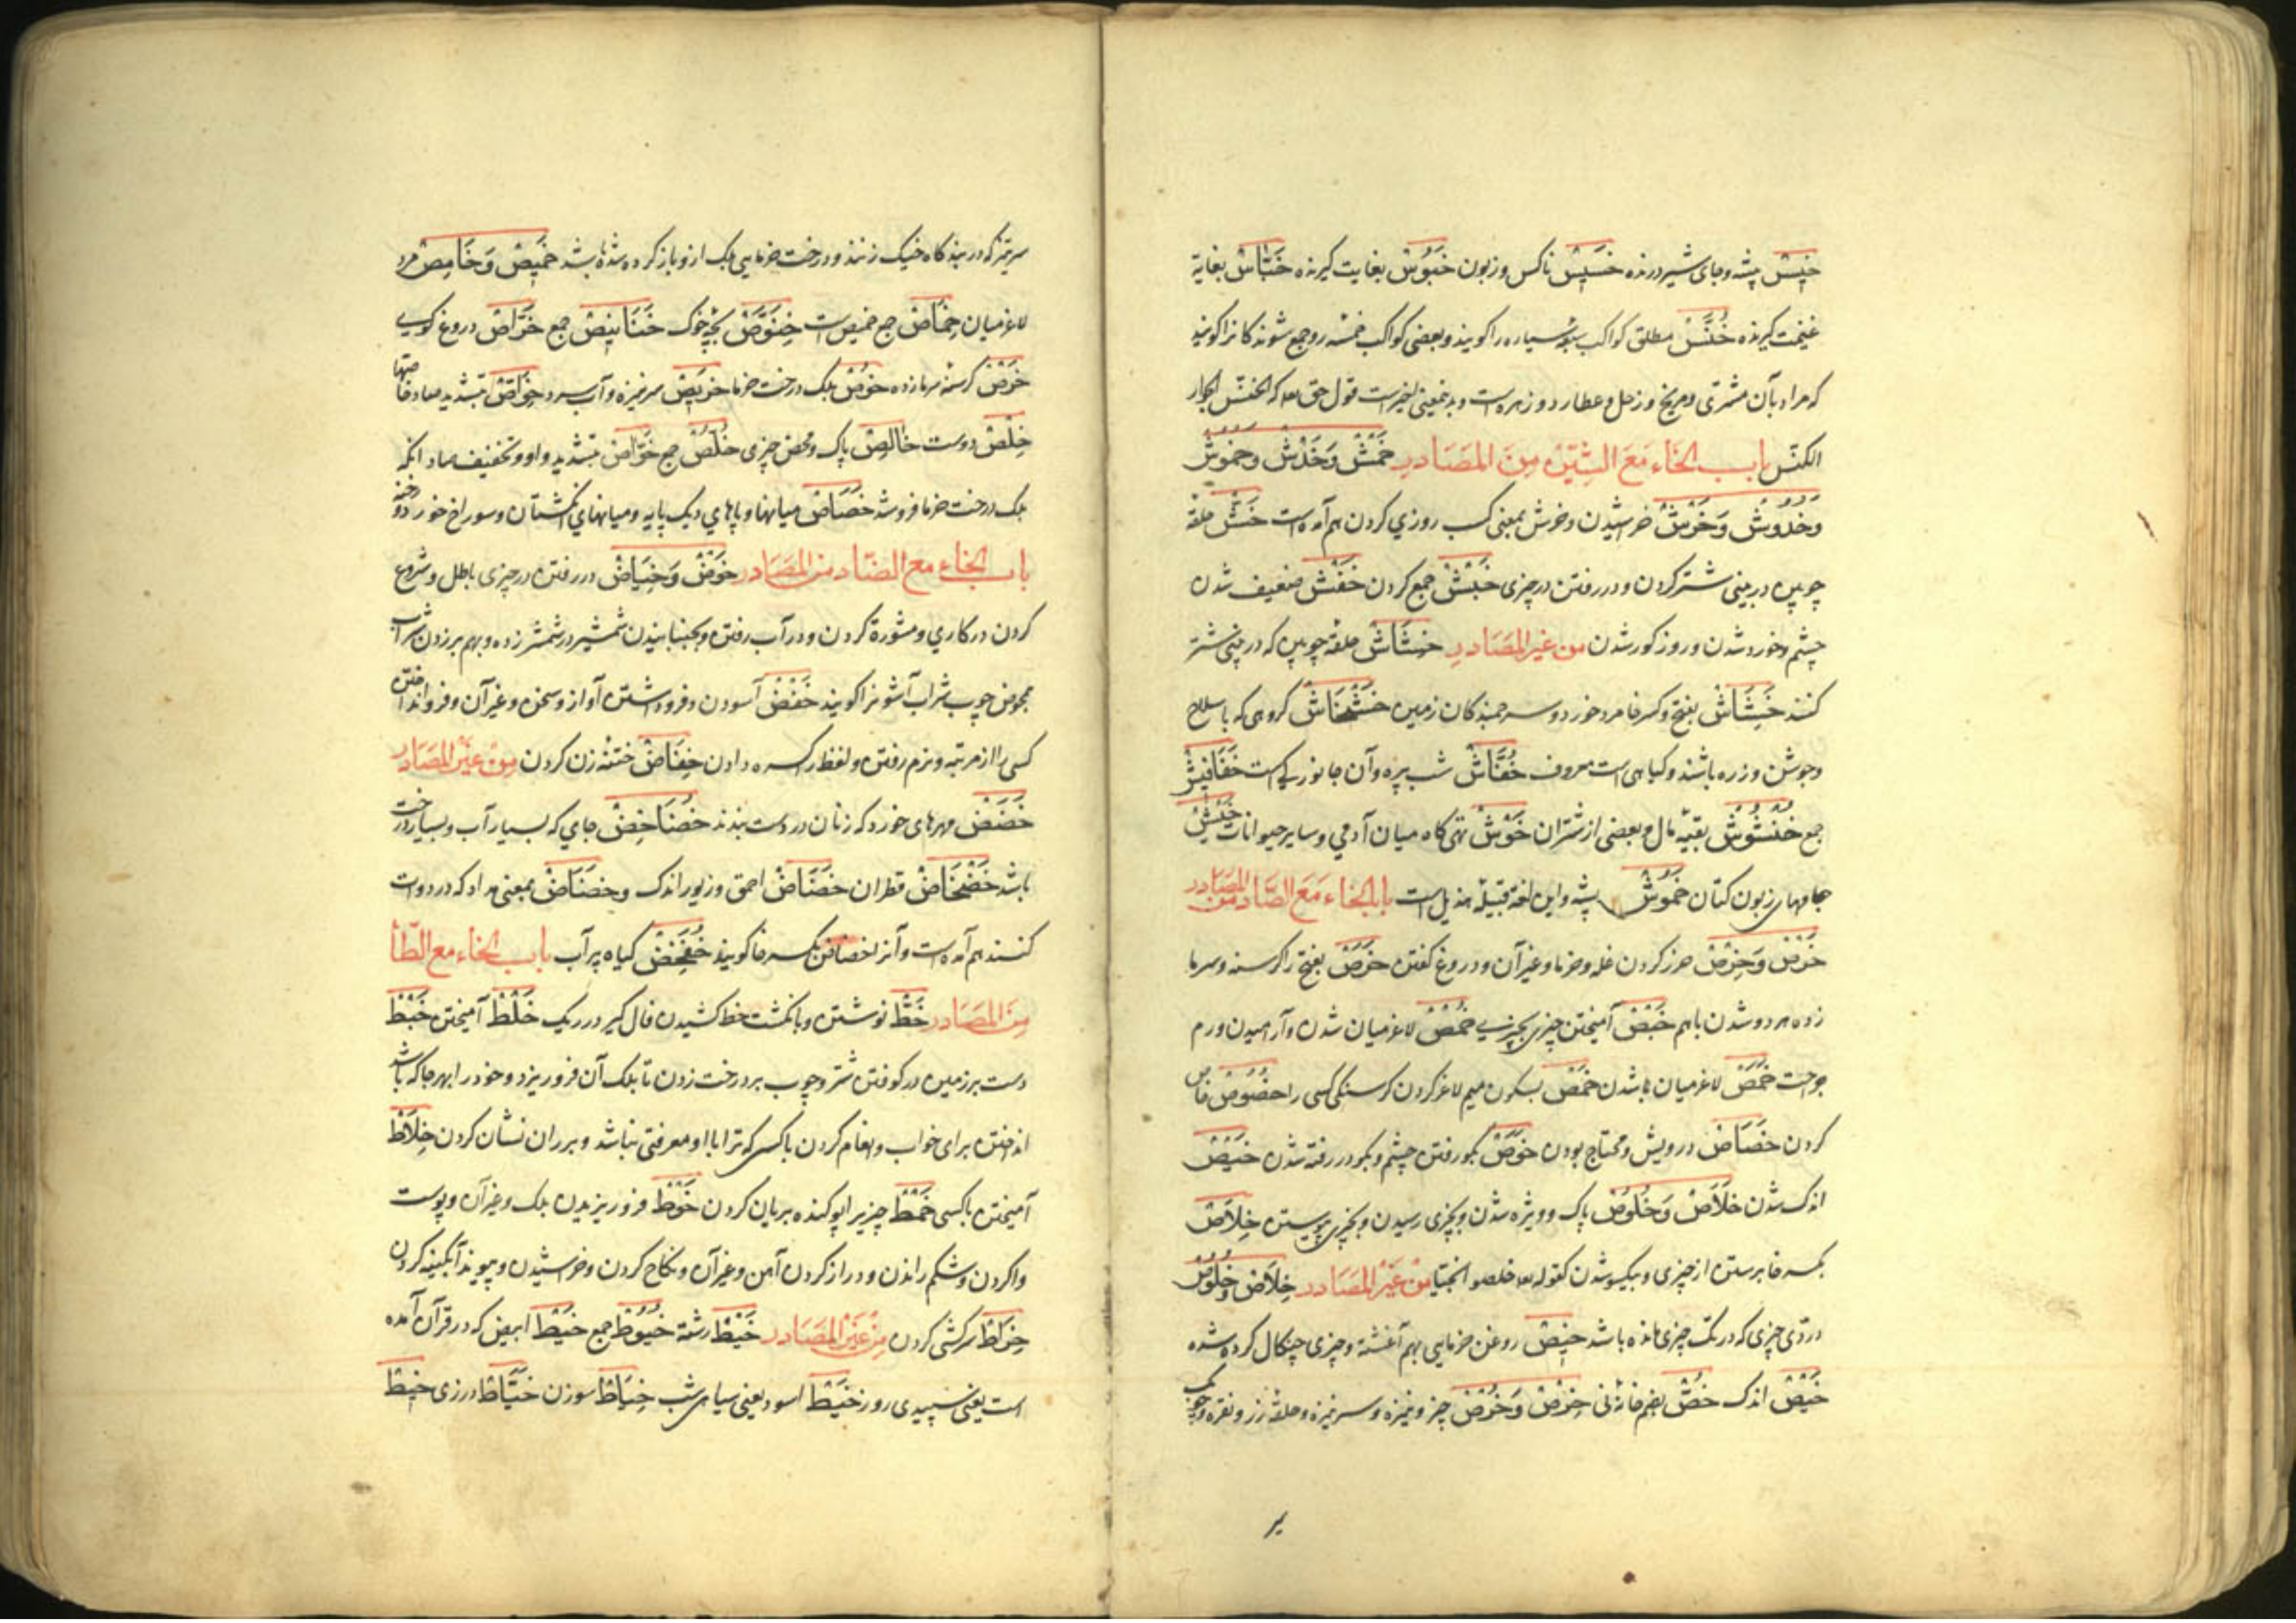 خیس بیشه و جای شیر درنده خسیس ناکس و زبون خبوس بغایت گیرنده خباس بغایة
غنیمت گیرنده خنس مطلق کواکب سیاره را گویند و بعضی کواکب خمسه گویند
که مراد بآن مشتری و مریخ و زحل و عطارد و زهره است قول حق که الخنس الجوار
الکنس باب الخاء مع الشین من المصادر خمش و خدش و خموش
و خدوش و خرش خراشیدن و خرش بمعنی کسب روزی کردن هم آمده است خش حلقه
چوبین در بینی شتر کردن و در رفتن در چیزی خبش جمع کردن خفش ضعیف شدن
چشم و خورد شدن و روز کور شدن من غیر المصادر خشاش حلقه چوبین که در بینی شتر
کنند خشاش بفتح و کسر خا مرد خورد و سر جنبندکان زمین خشخاش گروهی که با سلاح
و جوشن و زره باشند و گیاهی است معروف خفاش شب پره و آن جانوریست خفافیش
جمع خنشوش بقیه مال و بعضی از شتران خوش تهی گاه میان آدمی و سایر حیوانات خیش
جامهای زبون کتان خموش پشه و این لغة قبیله هذیل است باب الخاء مع الصاد من المصادر
خرص و خرص حزر کردن غله و خرما و غیر آن و دروغ گفتن خرص بفتح را گرسنه و سرما
زده هر دو شدن باهم خبص آمیختن چیزی بچیزی خمص لاغر میان شدن و آرامیدن ورم
جراحت خمص لاغر میان شدن خمص بسکون میم لاغر کردن گرسنگی کسی را خصوص خاص
کردن خصاص درویش و محتاج بودن خوص بگو رفتن چشم و بگو در رفته شدن خیص
اندک شدن خلاص و خلوص پاک و ویژه شدن و بچیزی رسیدن و بچیزی پیوستن خلاص
بکسر خا برستن از چیزی و بیکسو شدن کقوله خلصوا نجیا من غیر المصادر خلاص و خلوص
دردی چیزی که در تک چیزی مانده باشد خبیص روغن خرمایی بهم آغشته و چیزی چنگال کرده شده
خیص اندک خص بضم خا خرص و خرص چیز و نیزه و سر نیزه و حلقه زر و نقره و چوب
یر
سر تیز که در خیک زنند و درخت خرمایی که برگ ازو باز کرده شده باشد خمیص و خامص مرد
لاغر میان خماص جمع خمیص است خنوص بچه خوک خنانیص جمع خراص دروغ گوی
خرص گرسنه سرما زده خوص برگ درخت خرما خریص سر نیزه و آب سرد خواص بتشدید صاد خاصها
خلص دوست خالص پاک و محض چیزی خلص جمع خواص بتشدید واو و تخفیف صاد آنکه
برگ درخت خرما فروشد خصاص میانهای دیگ پایه و میانهای انگشتان و سوراخ خورد و رخنه
باب الخاء مع الضاد من المصادر خوض و خیاض در رفتن در چیزی باطل و شروع
کردن در کاری و مشورة کردن و در آب رفتن و بجنبانیدن شمشیر در شمشیر زده و بهم برزدن شراب
مخوض چوب شراب آشور را گویند خفض آسودن و فرو داشتن آواز و سخن و غیر آن و فرو انداختن
کسی را از مرتبه و نرم رفتن و لفظ را کسره دادن خفاض ختنه زن کردن من غیر المصادر
خضض مهرهای خورد که زنان در دست بندند خضاخض جای که بسیار آب و بسیار درخت
باشد خضخاض قطران خضاض احمق و زیور اندک و خضاض بمعنی مداد که در دوات
کنند هم آمده است و آنرا خضاض بکسر خا گویند خضخض گیاه پر آب باب الخاء مع الطاء
من المصادر خط نوشتن و با نگشت خط کشیدن فال گیر در ریگ خلط آمیختن خبط
دست بر زمین در کوفتن شتر و چوب بر درخت زدن تا برگ آن فرو ریزد و خود را بهر جا که باشد
انداختن برای خواب و انعام کردن با کسی که ترا با او معرفتی نباشد و بر ران نشان کردن خلاط
آمیختن با کسی خمط چیزی را بو کنده بریان کردن خرط فرو ریزیدن برگ و غیر آن و پوست
وا کردن و شکم راندن و دراز کردن آهن و غیر آن و نکاح کردن و خراشیدن و پیوند آبگینه کردن
خراط سرکشی کردن من غیر المصادر خیط رشته خیوط جمع خیط ابیض که در قرآن آمده
است یعنی سپیدی روز خیط اسود یعنی سیاهی شب خیاط سوزن خیاط درزی خیط